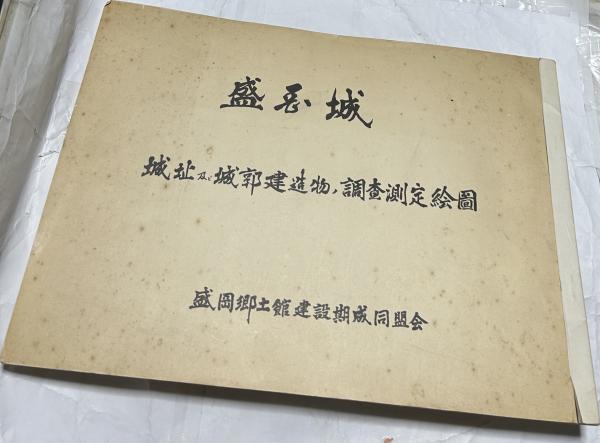 盛岡城
城址及ビ城郭建造物ノ調査測定絵圖
盛岡郷土館建設期成同盟会